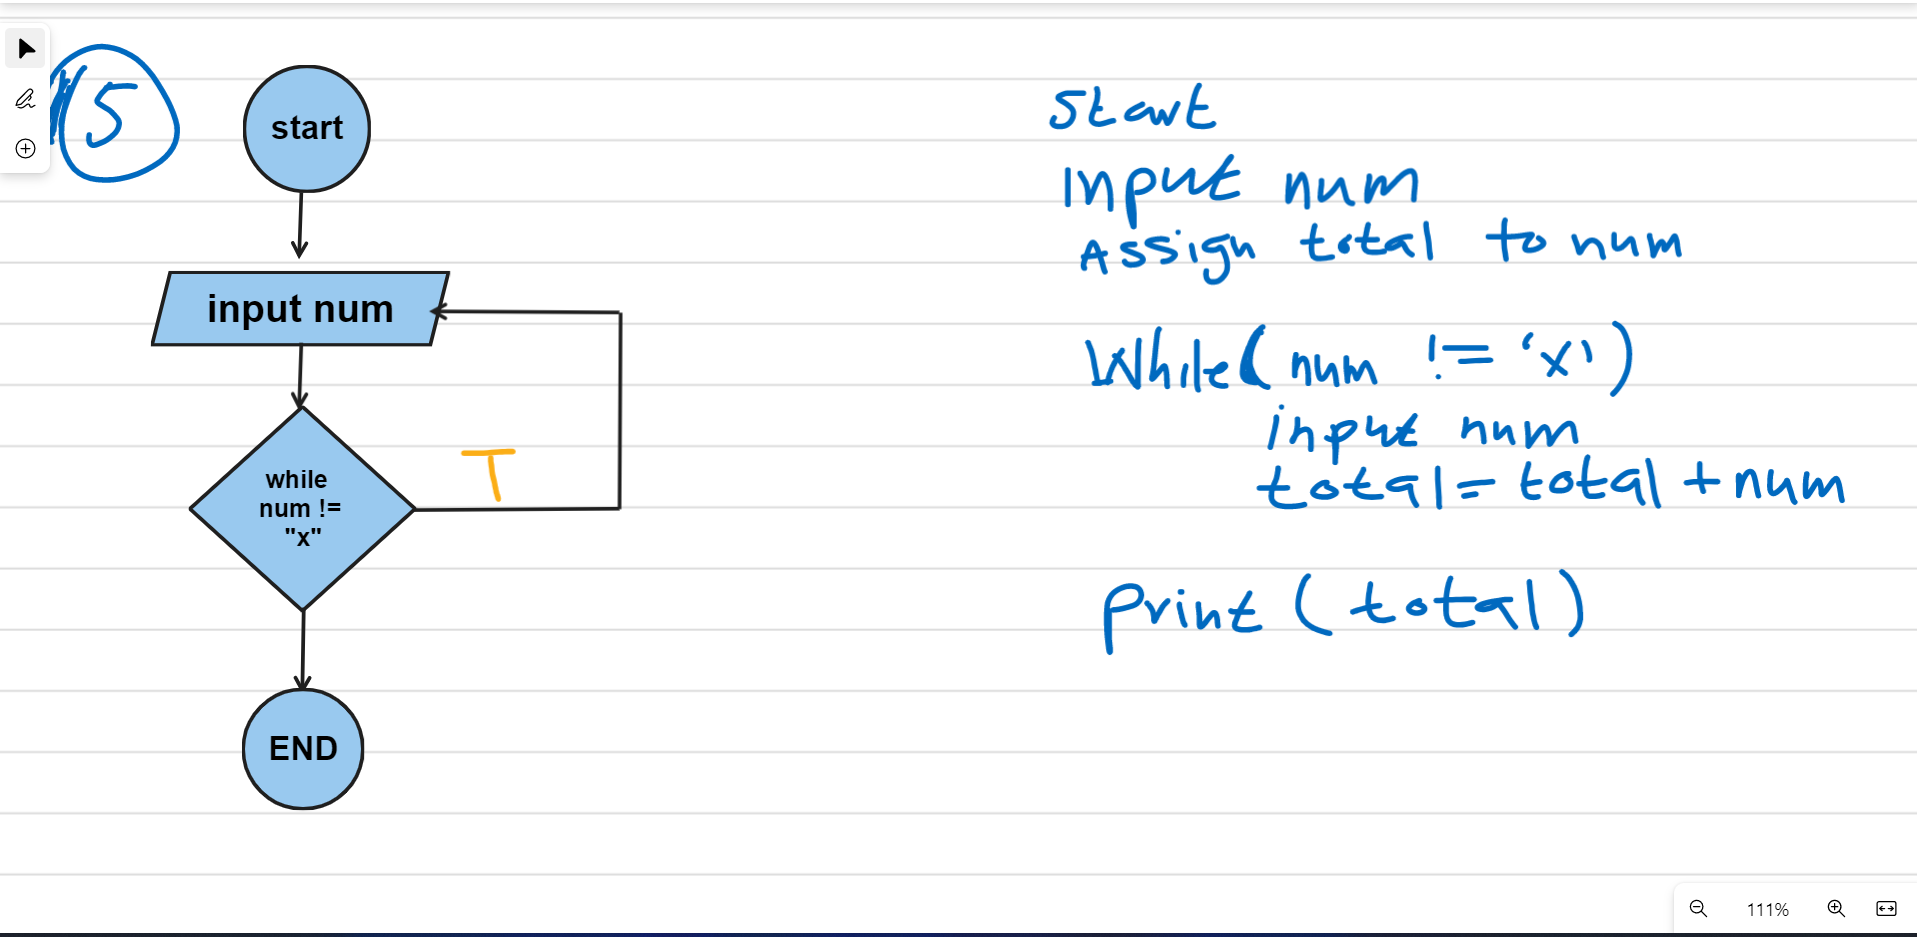 15
start
input num
T
while
num !=
"x"
END
Start
Input num
Assign total to num
While(num != 'x')
input num
total= total + num
print (total)
111%